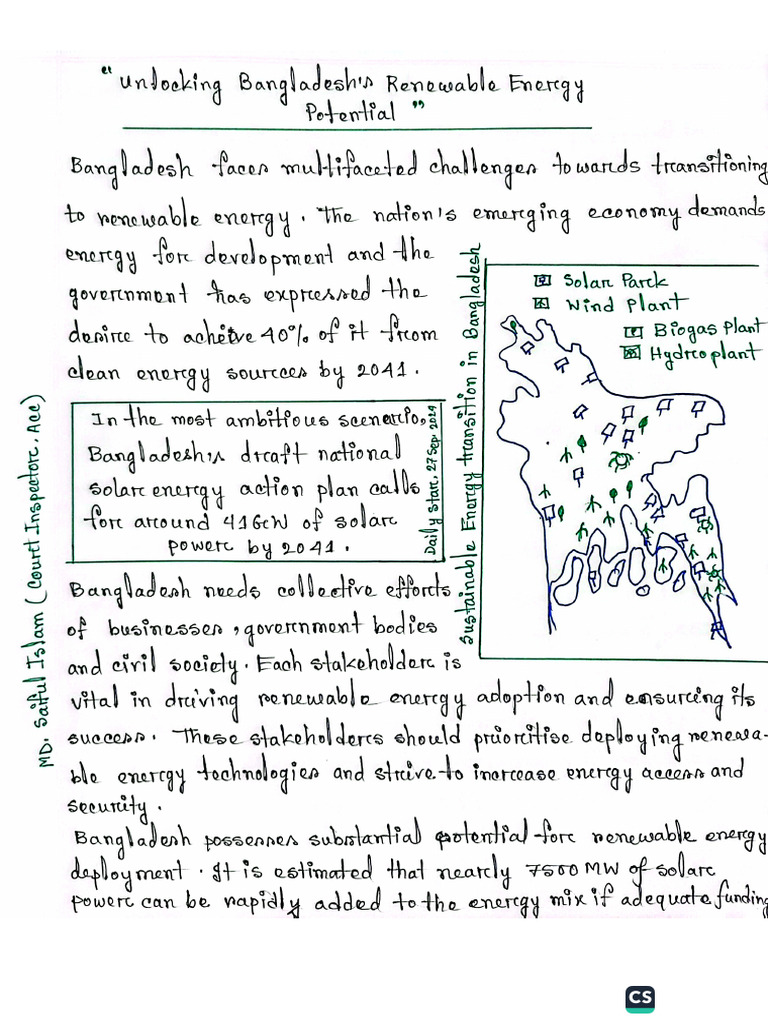 "Unlocking Bangladesh's Renewable Energy
Potential"
Bangladesh faces multifaceted challenges towards transitioning
to renewable energy. The nation's emerging economy demands
energy for development and the
government has expressed the
desire to acheive 40% of it from
clean energy sources by 2041.
In the most ambitious scenerio,
Bangladesh's draft national
solar energy action plan calls
for around 41GW of solar
power by 2041.
Daily Star, 27 Sep 2024
Sustainable Energy transition in Bangladesh
Solar Park
Wind Plant
Biogas Plant
Hydro plant
MD. Saiful Islam (Court Inspector, Acc)
Bangladesh needs collective efforts
of businesses, government bodies
and civil society. Each stakeholder is
vital in driving renewable energy adoption and ensuring its
success. These stakeholders should prioritise deploying renewa-
ble energy technologies and strive to increase energy access and
security.
Bangladesh possesses substantial potential for renewable energy
deployment. It is estimated that nearly 7500 MW of solar
power can be rapidly added to the energy mix if adequate funding
CS